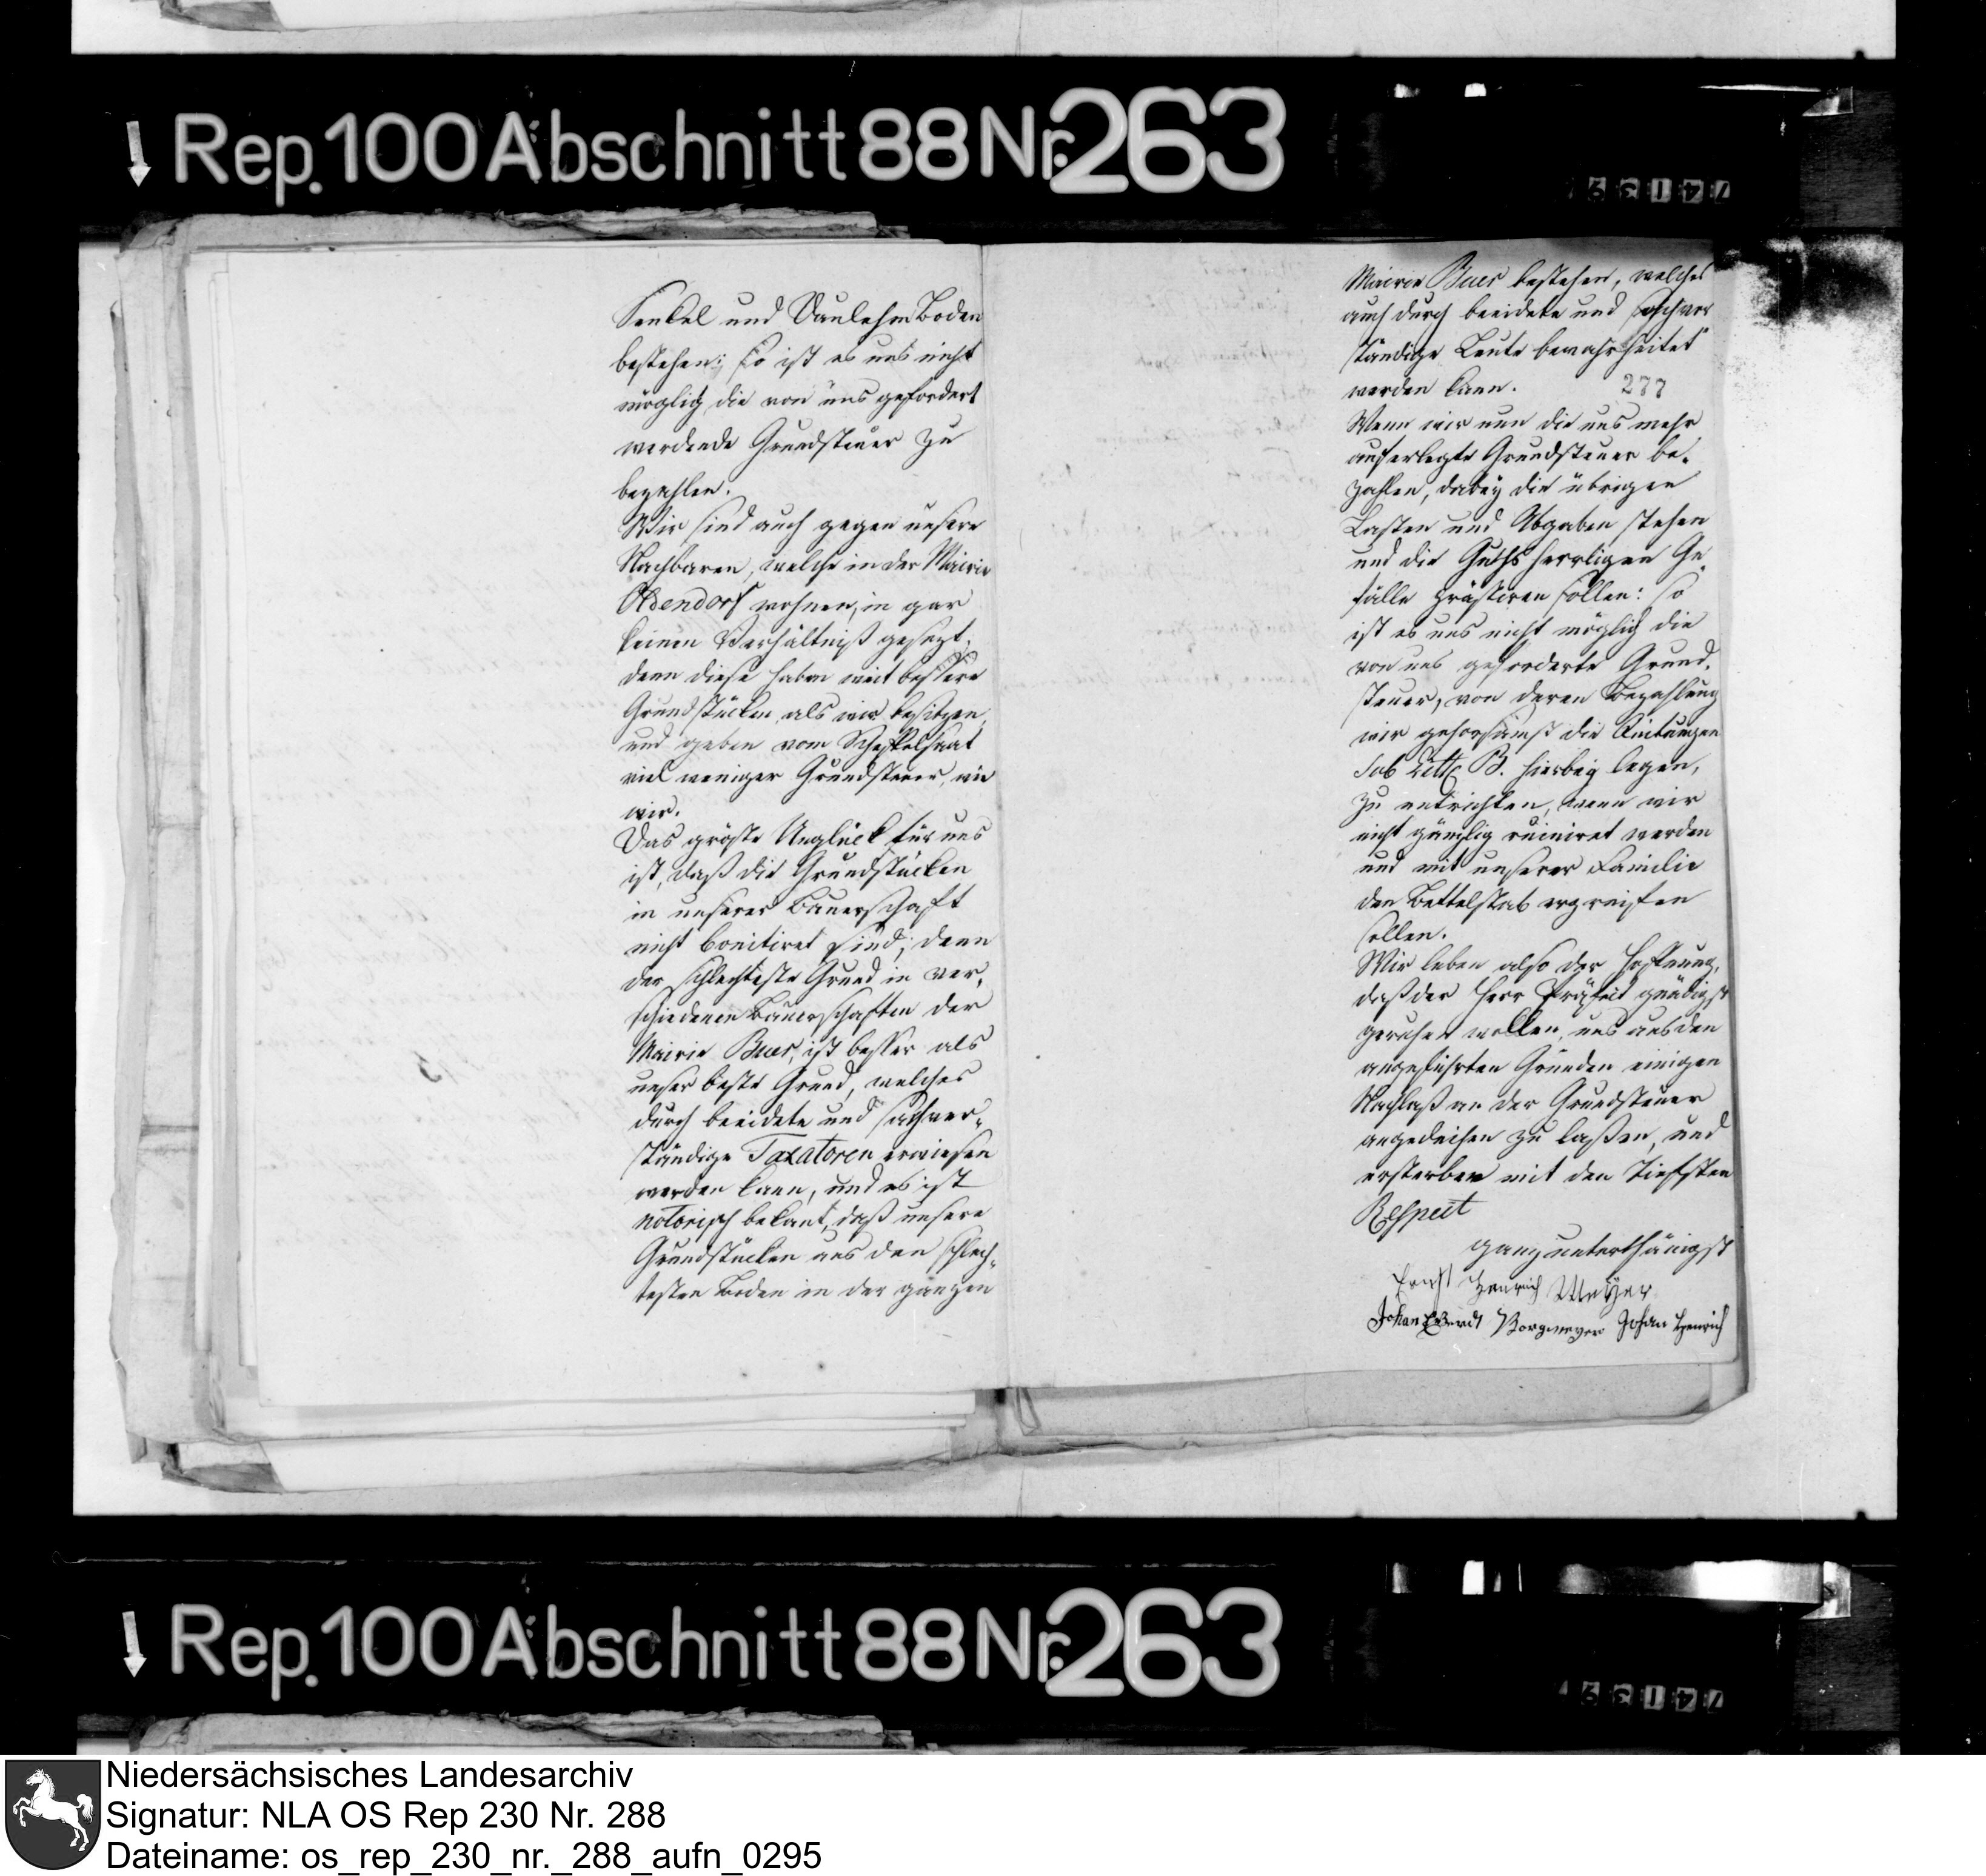 Rep. 100 Abschnitt 88 Nr. 263
74139
Senkel und Daulehm Boden
bestehen; so ist es uns nicht
möglich die von uns gefordert
werdende Grundsteuer zu
bezahlen.
Wir sind auch gegen unsere
Nachbaren, welche in der Mairie
Oldendorf wohnen, in gar
keinen Verhältniß gesezt,
denn diese haben weit bessere
Grundstücken als wir besitzen,
und geben vom Scheffelsaat
viel weniger Grundsteuer, wie
wir.
Das gröste Unglück für uns
ist, daß die Grundstücken
in unserer Bauerschaft
nicht bonitiret sind; denn
der schlechteste Grund in ver-
schiedenen Bauerschaften der
Mairie Buer, ist besser als
unser beste Grund, welches
durch beeidete und sachver-
ständige Taxatoren erwiesen
werden kann, und es ist
notorisch bekant, daß unsere
Grundstücken aus den schlech-
testen Boden in der ganzen
Mairie Buer bestehen, welches
auch durch beeidete und sachver
ständige Leute bewahrheitet
werden kann.
277
Wenn wir nun die uns mehr
auferlegte Grundsteuer be-
zahlen, dabey die übrigen
Lasten und Abgaben stehen
und die Guthsherrligen Ge-
fälle prästiren sollen: so
ist es uns nicht möglich die
von uns geforderte Grund-
steuer, von deren Bezahlung
wir gehorsamst die Quitungen
sub Litt. B. hierbey legen,
zu entrichten, wenn wir
nicht gänzlig ruiniret werden
und mit unserer Familie
den Bettelstab ergreifen
sollen.
Wir leben also der Hoffnung,
daß der Herr Präfect gnädigst
geruhen wollen, uns aus den
angeführten Gründen einigen
Nachlaß an der Grundsteuer
angedeihen zu laßen, und
ersterben mit den tiefsten
Respect
ganz unterthänigst
Ernst Henrich Meÿer
Johan Everdt Borgmeyer Johan Henrich
Rep. 100 Abschnitt 88 Nr. 263
74139
Niedersächsisches Landesarchiv
Signatur: NLA OS Rep 230 Nr. 288
Dateiname: os_rep_230_nr._288_aufn_0295